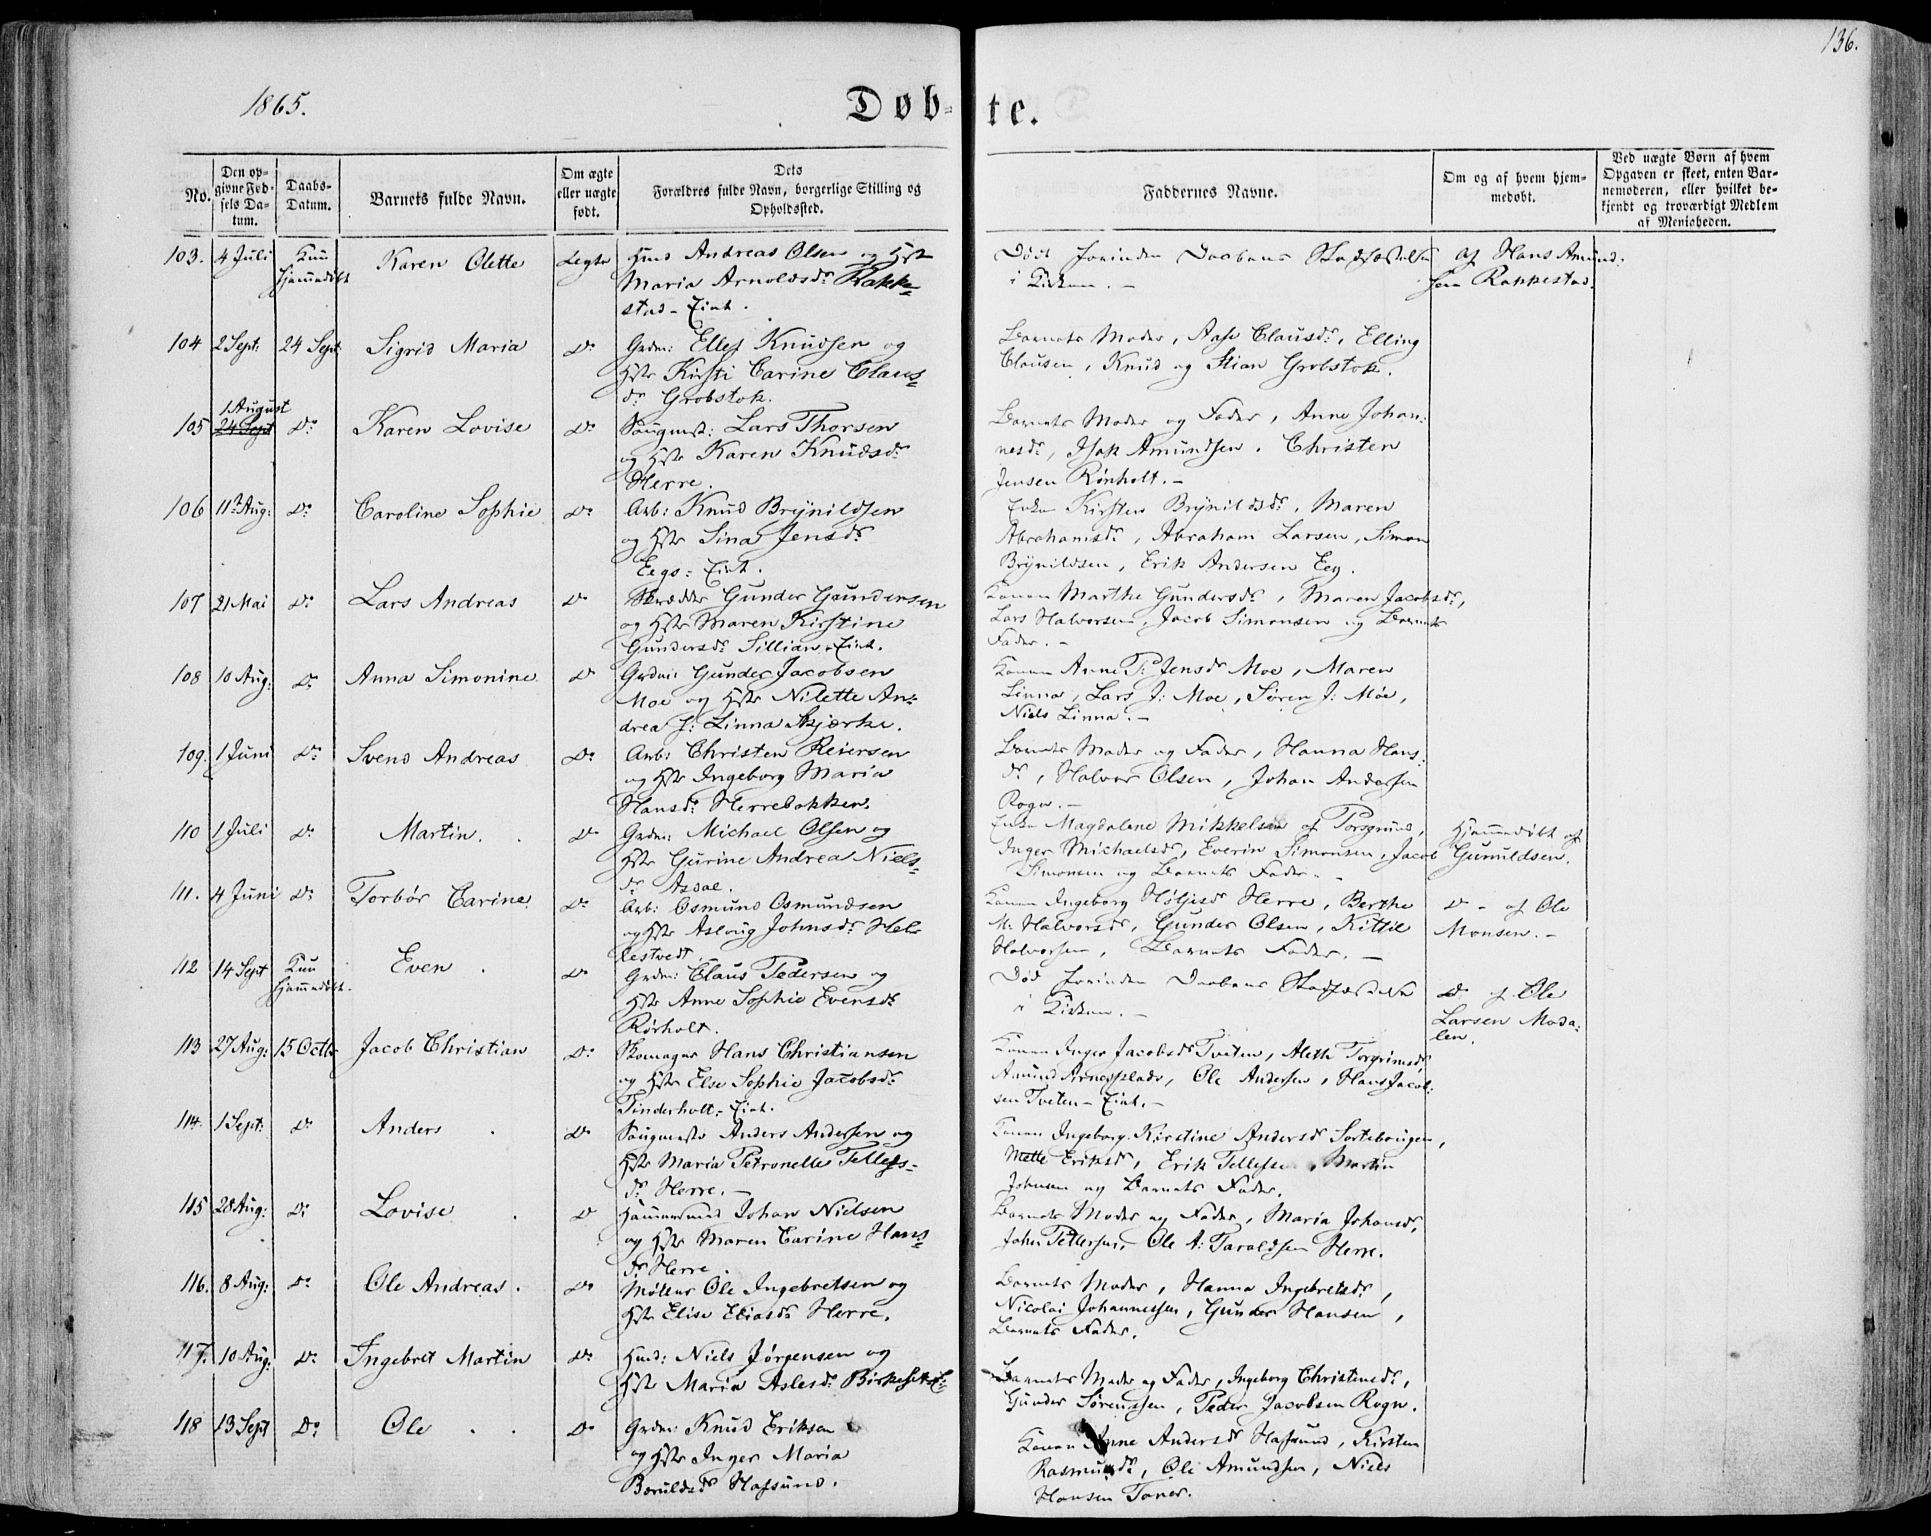 136.
1865.
Døb-te.
No.
Den op-
givne Fød-
sels Da-
tum.
Daabs-
Datum.
Barnets fulde Navn.
Om ægte
eller uægte
født.
Dets
Forældres fulde Navn, borgerlige Stilling og
Opholdssted.
Faddernes Navne.
Om og af hvem hjem-
medøbt.
Ved uægte Børn af hvem
Opgaven er skeet, enten Bar-
nemoderen, eller hvilket be-
kjendt og troværdigt Medlem
af Menigheden.
103. 4 Juli Kun Karen Olette Ægte Hmd Andreas Olsen og Hst
hjemmedøbt Maria Arnoldsdr Rakke-
stad-Eiet.
Død forinden Daabens Stadfæstelse
i Kirken. -
af Hans Amund-
sen Rakkestad.
104 2 Sept: 24 Sept Sigrid Maria do Grdm: Ellef Knudsen og
Hst Kirsti Carine Claus-
dr Grobstok.
Barnets Moder, Aase Clausdr, Elling
Clausen, Knud og Stian Grobstok.
1 August
105 24 Sept do Karen Lovise do Saugmst: Lars Thorsen
og Hst Karen Knudsdr
Herre.
Barnets Moder og Fader, Anne Johan-
nesdr, Isak Amundsen, Christen
Jensen Rønholt. -
106 11 Aug: do Caroline Sophie do Arb: Knud Brynildsen
og Hst Sina Jensdr
Eegs-Eiet.
Enke Kirsten Brynildsdr, Maren
Abrahamsdr, Abraham Larsen, Simon
Brynildsen, Erik Andersen Eeg.
107 21 Mai do Lars Andreas do Skrædder Gunder Gundersen
og Hst Maren Kirstine
Gundersdr Sillian-Eiet.
Konen Marthe Gundersdr, Maren Jacobsdr,
Lars Halvorsen, Jacob Simonsen og Barnets
Fader. -
108 10 Aug: do Anna Simonine do Grdm: Gunder Jacobsen
Moe og Hst Nilette An-
drea J: Linna Skjerke.
Konen Anne P: Jensdr Moe, Maren
Linna, Lars J: Moe, Søren J: Moe,
Niels Linna. -
109. 1 Juni do Svend Andreas do Arb: Christen Reiersen
og Hst Ingeborg Maria
Hansdr Herrebakken.
Barnets Moder og Fader, Hanna Hans-
dr, Halvor Olsen, Johan Andersen
Rogn. -
110 1 Juli do Martin. do Grdm: Michael Olsen og
Hst Gurine Andrea Niels-
dr Asdal.
Enke Magdalene Mikkelsen af Porsgrund,
Inger Michaelsdr, Everin Simonsen, Jacob
Simonsen og Barnets Fader. -
Hjemmedøbt af
Gunuldsen.
111. 4 Juni do Torbør Carine do Arb: Osmund Osmundsen
og Hst Aslaug Johnsdr Hel-
lestvedt
Konen Ingeborg Høljesdr Herre, Berthe
M: Halvorsdr, Gunder Olsen, Kittil
Halvorsen, Barnets Fader. -
do - af Ole
Monsen. -
112 14 Sept Kun Even do Grdm: Claus Pedersen og
hjemmedøbt. Hst Anne Sophie Evensdr
Rørholt.
Død forinden Daabens Stadfæstelse
i Kirken. -
do af Ole
Larsen Moda-
len.
113 27 Aug: 15 Octbr Jacob Christian do Skomager Hans Christiansen
og Hst Else Sophie Jacobsdr
Tinderholt-Eiet.
Konen Inger Jacobsdr Tveten, Aleth Torgrimsdr,
Amund Arnesplads, Ole Andersen, Hans Jacob-
sen Tveten-Eiet. -
114. 1 Sept: do Anders do Saugmester Anders Andersen og
Hst Maria Petronelle Tellefs-
dr Herre. -
Konen Ingeborg Kirstine Andersdr Sortebougen,
Mette Eriksdr, Erik Tellefsen, Martin
Johnsen og Barnets Fader.
115 28 Aug: do Lovise do Hammersmed Johan Nielsen
og Hst Maren Carine Hans-
dr Herre.
Barnets Moder og Fader, Maria Johansdr,
John Pettersen, Ole A: Taraldsen Herre.
116. 8 Aug: do Ole Andreas. do Møller Ole Ingebretsen og
Hst Elise Eliasdr Herre.
Barnets Moder, Hanna Ingebretsdr,
Nicolai Johannessen, Gunder Hansen,
Barnets Fader.
117. 10 Aug: do Ingebret Martin do Hmd: Niels Jørgensen og
Hst Maria Aslesdr
Barnets Moder og Fader, Ingeborg Christensdr,
Gunder Sørenssen, Peder Jacobsen Rogn.
118 13 Sept do Ole do Grdm: Knud Eriksen
og Hst Inger Maria
Boruldsdr Hafsund.
Konen Anne Andersdr Hafsund, Kirsten
Rasmusdr, Ole Amundsen, Niels
Hansen Toner.